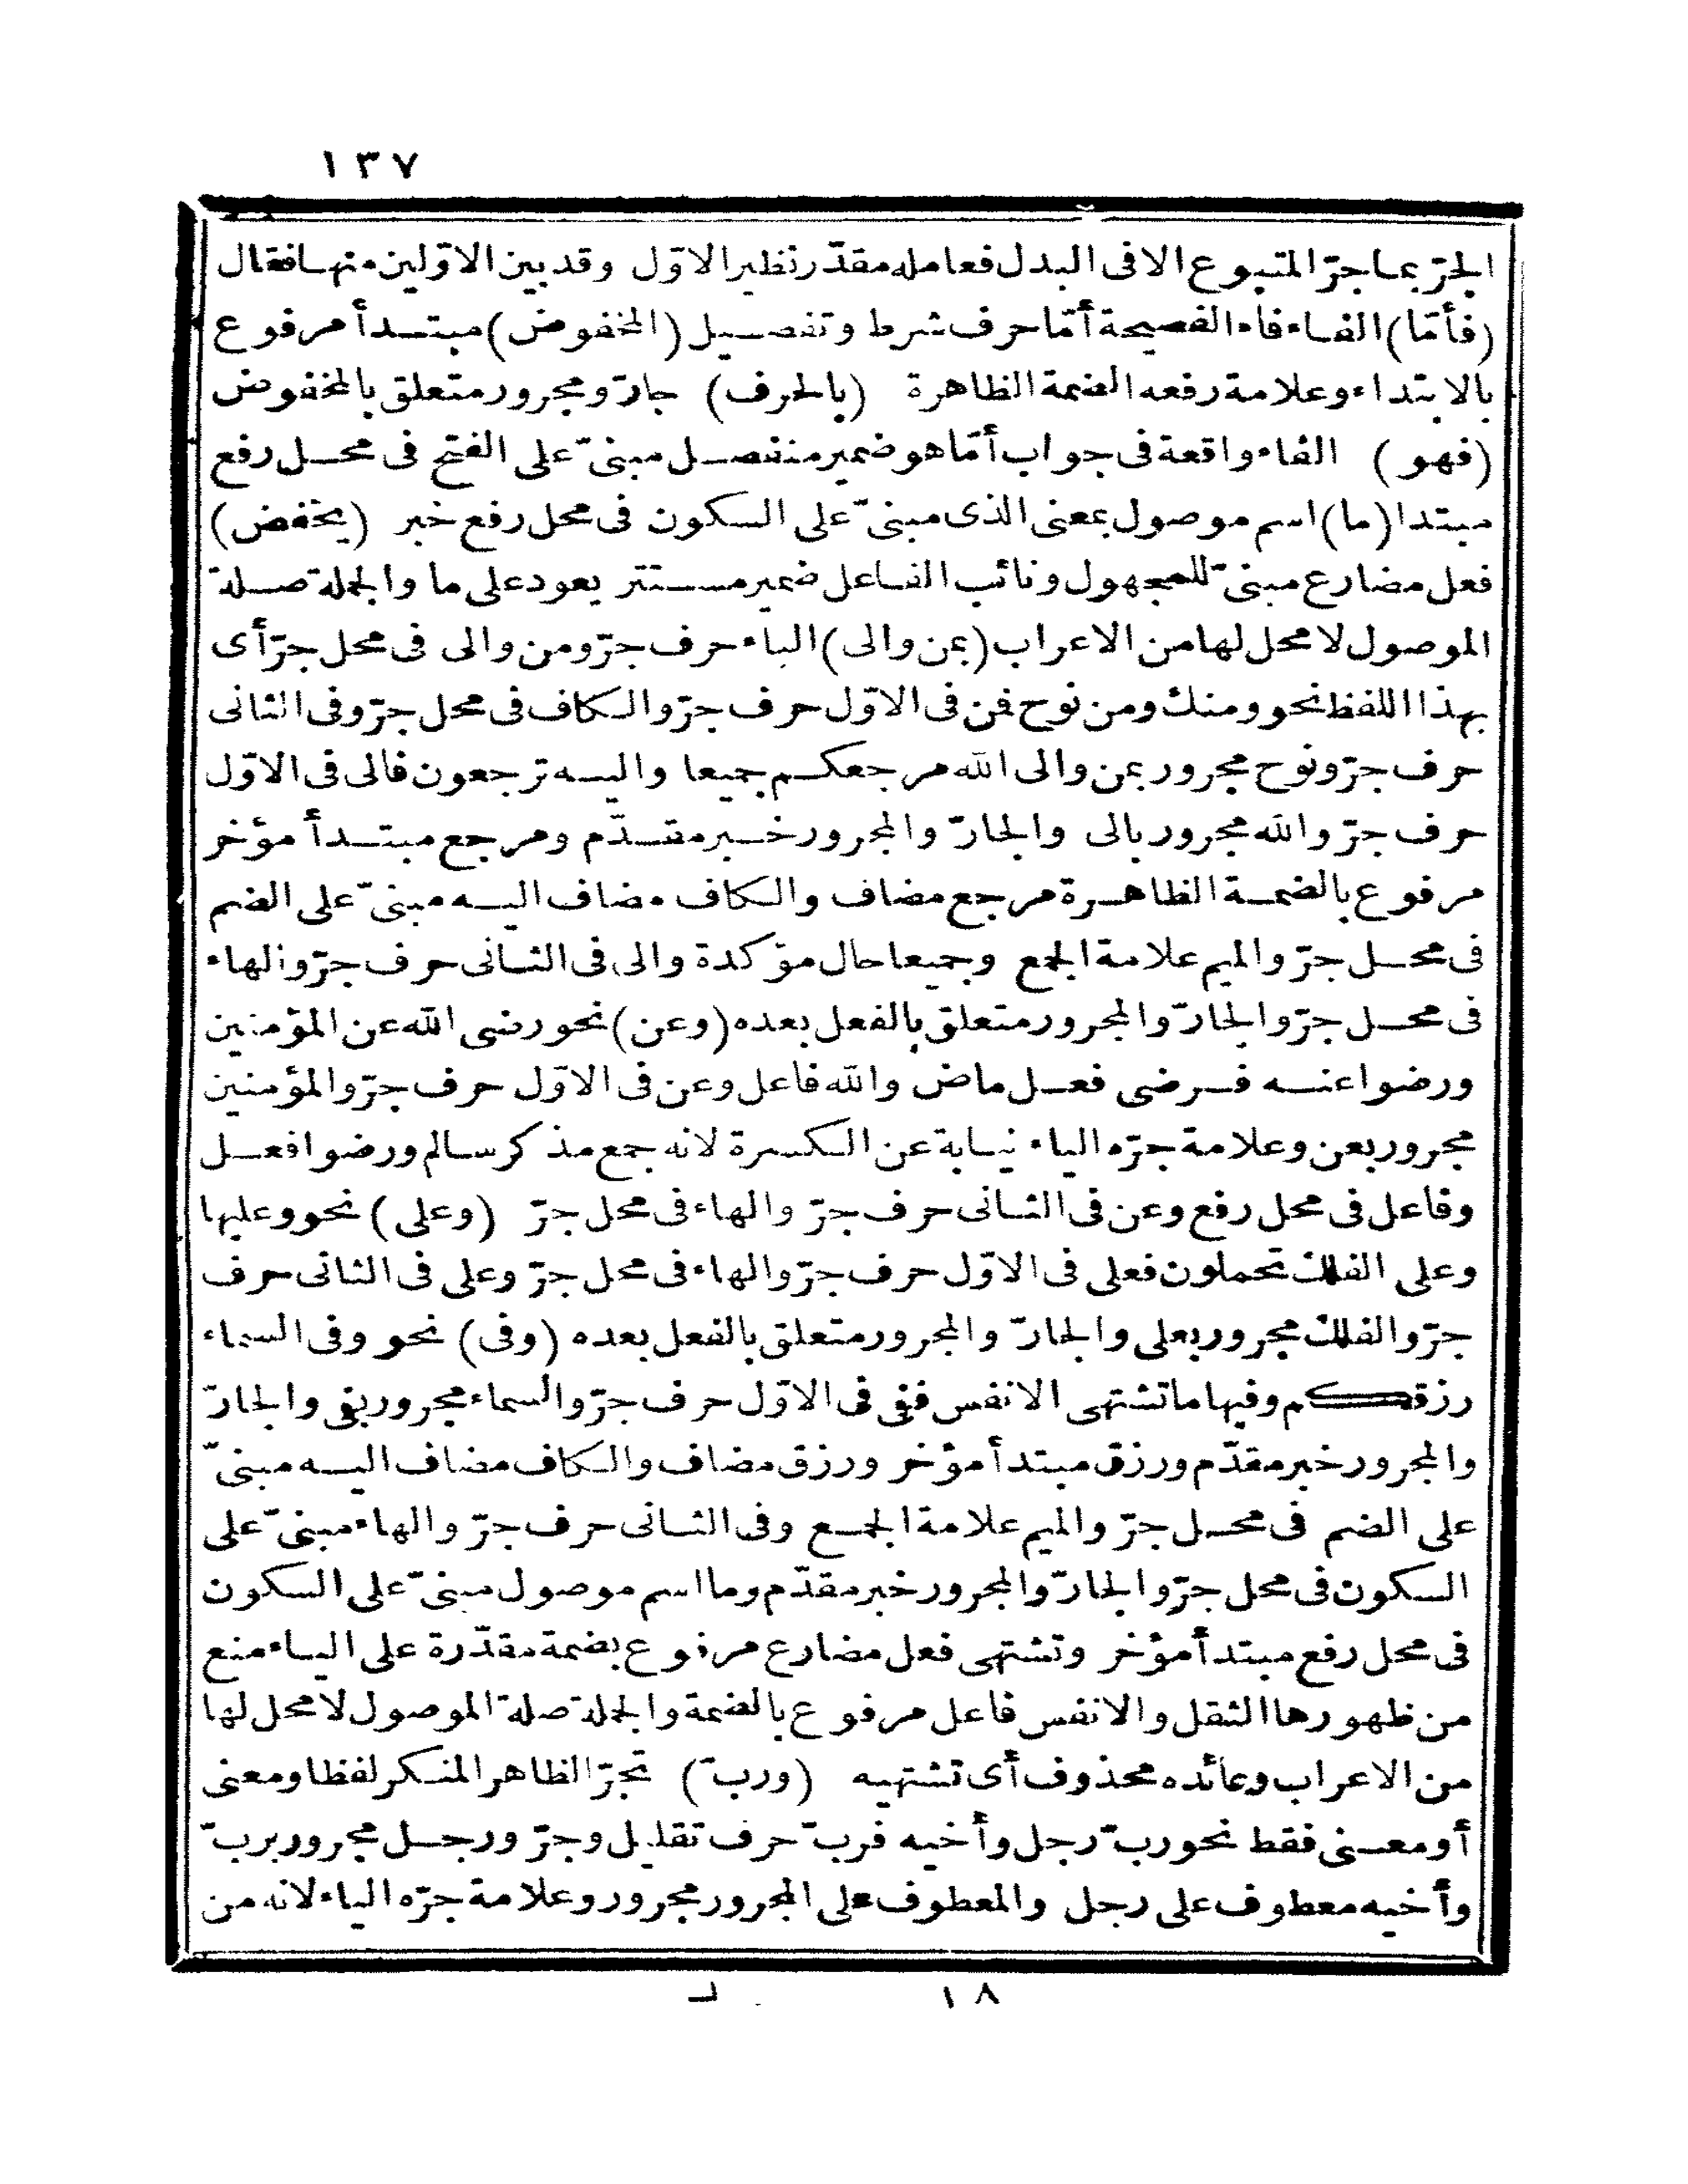 ١٣٧
الجرّ بما جرّ المتبوع الا فى البدل فعامله مقدّر نظير الاوّل وقد بين الاوّلين منها فقال
(فأمّا) الفاء فاء الفصيحة أمّا حرف شرط وتفصيل (المخفوض) مبتدأ مرفوع
بالابتداء وعلامة رفعه الضمة الظاهرة (بالحرف) جارّ ومجرور متعلق بالمخفوض
(فهو) الفاء واقعة فى جواب أمّا هو ضمير منفصل مبنىّ على الفتح فى محل رفع
مبتدا (ما) اسم موصول بمعنى الذى مبنىّ على السكون فى محل رفع خبر (يخفض)
فعل مضارع مبنىّ للمجهول ونائب الفاعل ضمير مستتر يعود على ما والجملة صلة
الموصول لا محل لها من الاعراب (بمن والى) الباء حرف جرّ ومن والى فى محل جرّ أى
بهذا اللفظ نحو ومنك ومن نوح فمن فى الاوّل حرف جرّ والكاف فى محل جرّ وفى الثانى
حرف جرّ ونوح مجرور بمن والى الله مرجعكم جميعا واليه ترجعون فالى فى الاوّل
حرف جرّ والله مجرور بالى والجارّ والمجرور خبر مقدّم ومرجع مبتدأ مؤخر
مرفوع بالضمة الظاهرة مرجع مضاف والكاف مضاف اليه مبنىّ على الضم
فى محل جرّ والميم علامة الجمع وجميعا حال مؤكدة والى فى الثانى حرف جرّ والهاء
فى محل جرّ والجارّ والمجرور متعلق بالفعل بعده (وعن) نحو رضى الله عن المؤمنين
ورضوا عنه فرضى فعل ماض والله فاعل وعن فى الاوّل حرف جرّ والمؤمنين
مجرور بعن وعلامة جرّه الياء نيابة عن الكسرة لانه جمع مذكر سالم ورضوا فعل
وفاعل فى محل رفع وعن فى الثانى حرف جرّ والهاء فى محل جرّ (وعلى) نحو وعليها
وعلى الفلك تحملون فعلى فى الاوّل حرف جرّ والهاء فى محل جرّ وعلى فى الثانى حرف
جرّ والفلك مجرور بعلى والجارّ والمجرور متعلق بالفعل بعده (وفى) نحو وفى السماء
رزقكم وفيها ما تشتهى الانفس ففى فى الاوّل حرف جرّ والسماء مجرور بفى والجارّ
والمجرور خبر مقدّم ورزق مبتدأ مؤخر ورزق مضاف والكاف مضاف اليه مبنىّ
على الضم فى محل جرّ والميم علامة الجمع وفى الثانى حرف جرّ والهاء مبنىّ على
السكون فى محل جرّ والجارّ والمجرور خبر مقدّم وما اسم موصول مبنىّ على السكون
فى محل رفع مبتدأ مؤخر وتشتهى فعل مضارع مرفوع بضمة مقدّرة على الياء منع
من ظهورها الثقل والانفس فاعل مرفوع بالضمة والجملة صلة الموصول لا محل لها
من الاعراب وعائده محذوف أى تشتهيه (وربّ) تجرّ الظاهر المنكر لفظا ومعنى
أو معنى فقط نحو ربّ رجل وأخيه فربّ حرف تقليل وجرّ ورجل مجرور بربّ
وأخيه معطوف على رجل والمعطوف على المجرور مجرور وعلامة جرّه الياء لانه من
١٨ ـ